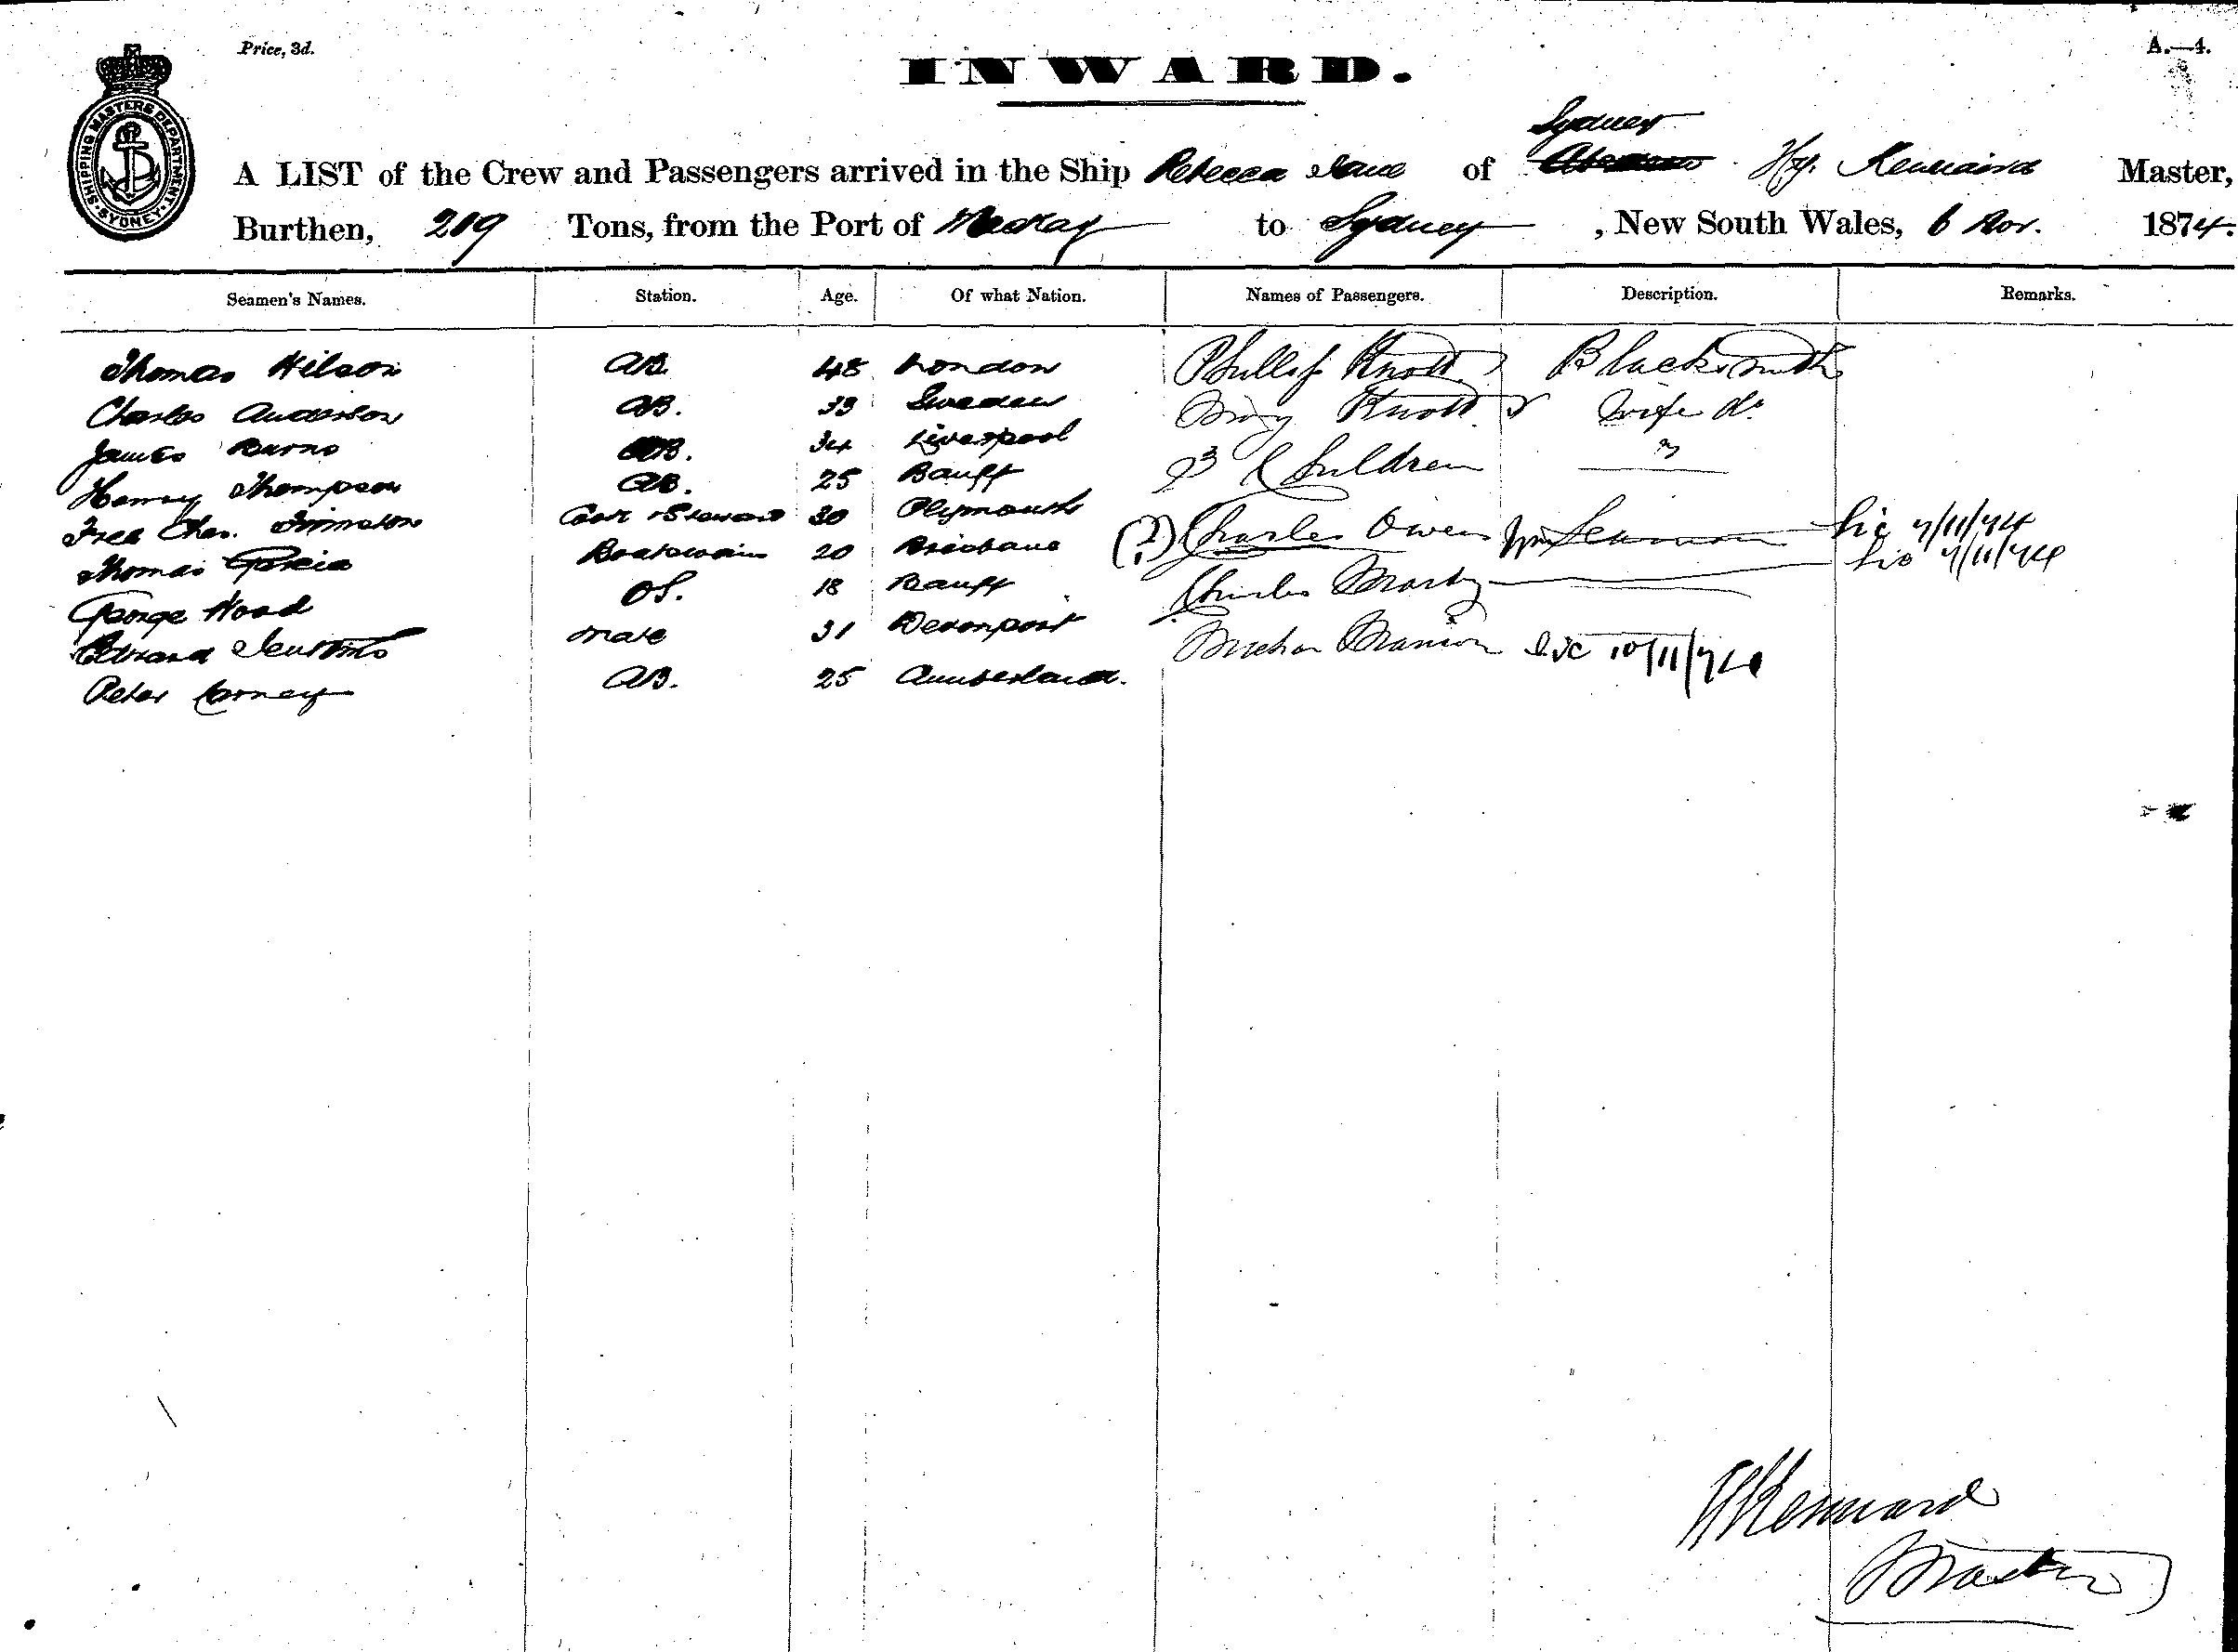 Price, 3d.
A.—4.
INWARD.
SHIPPING MASTERS DEPARTMENT SYDNEY
Sydney
A LIST of the Crew and Passengers arrived in the Ship Rebecca Jane of Hy. Master,
Burthen, 209 Tons, from the Port of Mackay to Sydney, New South Wales, 6 Nov. 1874.
Seamen's Names. Station. Age. Of what Nation. Names of Passengers. Description. Remarks.
Thomas Wilson AB. 48 London Phillip Knott Blacksmith
Charles Anderson AB. 33 Sweden Knott Wife Do
James Burns AB. 34 Liverpool 3 Children "
Henry Thompson AB. 25 Banff
Fred Chas. Cook & Steward 30 Plymouth (?) Charles Owen Seaman Lic 7/11/74
Thomas Boatswain 20 Brisbane Charles Lic 7/11/74
George Wood OS. 18 Banff
Edward Jenkins Mate 31 Devonport Lic 10/11/74
Peter Carney AB. 25 Cumberland.
Kennard
Master